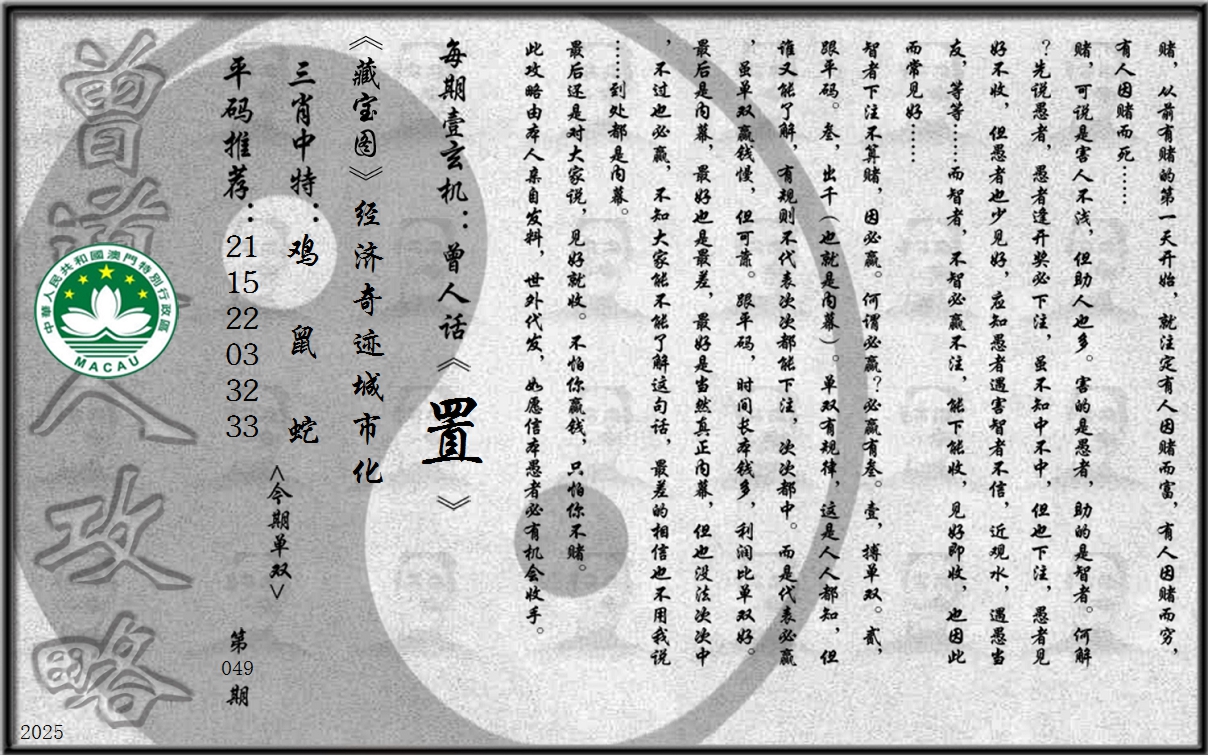 赌，从前有赌的第一天开始，就注定有人因赌而富，有人因赌而穷，
有人因赌而死……
赌，可说是害人不浅，但助人也多。害的是愚者，助的是智者。何解
？先说愚者，愚者逢开奖必下注，虽不知中不中，但也下注，愚者见
好不收，但愚者也少见好，应知愚者遇害智者不信，近观水，遇愚当
友，等等……而智者，不智必赢不注，能下能收，见好即收，也因此
而常见好……
智者下注不算赌，因必赢。何谓必赢？必赢有叁。壹，搏单双。贰，
跟平码。叁，出千（也就是内幕）。单双有规律，这是人人都知，但
谁又能了解，有规则不代表次次都能下注，次次都中。而是代表必赢
，虽单双赢钱慢，但可靠。跟平码，时间长本钱多，利润比单双好。
最后是内幕，最好也是最差，最好是当然真正内幕，但也没法次次中
，不过也必赢，不知大家能不能了解这句话，最差的相信也不用我说
……到处都是内幕。
最后还是对大家说，见好就收。不怕你赢钱，只怕你不赌。
此攻略由本人亲自发料，世外代发，如愿信本愚者必有机会收手。
每期壹玄机：曾人话《置》
《藏宝图》经济奇迹城市化
三肖中特：鸡 鼠 蛇
<今期单双>
平码推荐：21 15 22 03 32 33
第049期
曾道人攻略
中華人民共和國澳門特別行政區
MACAU
2025